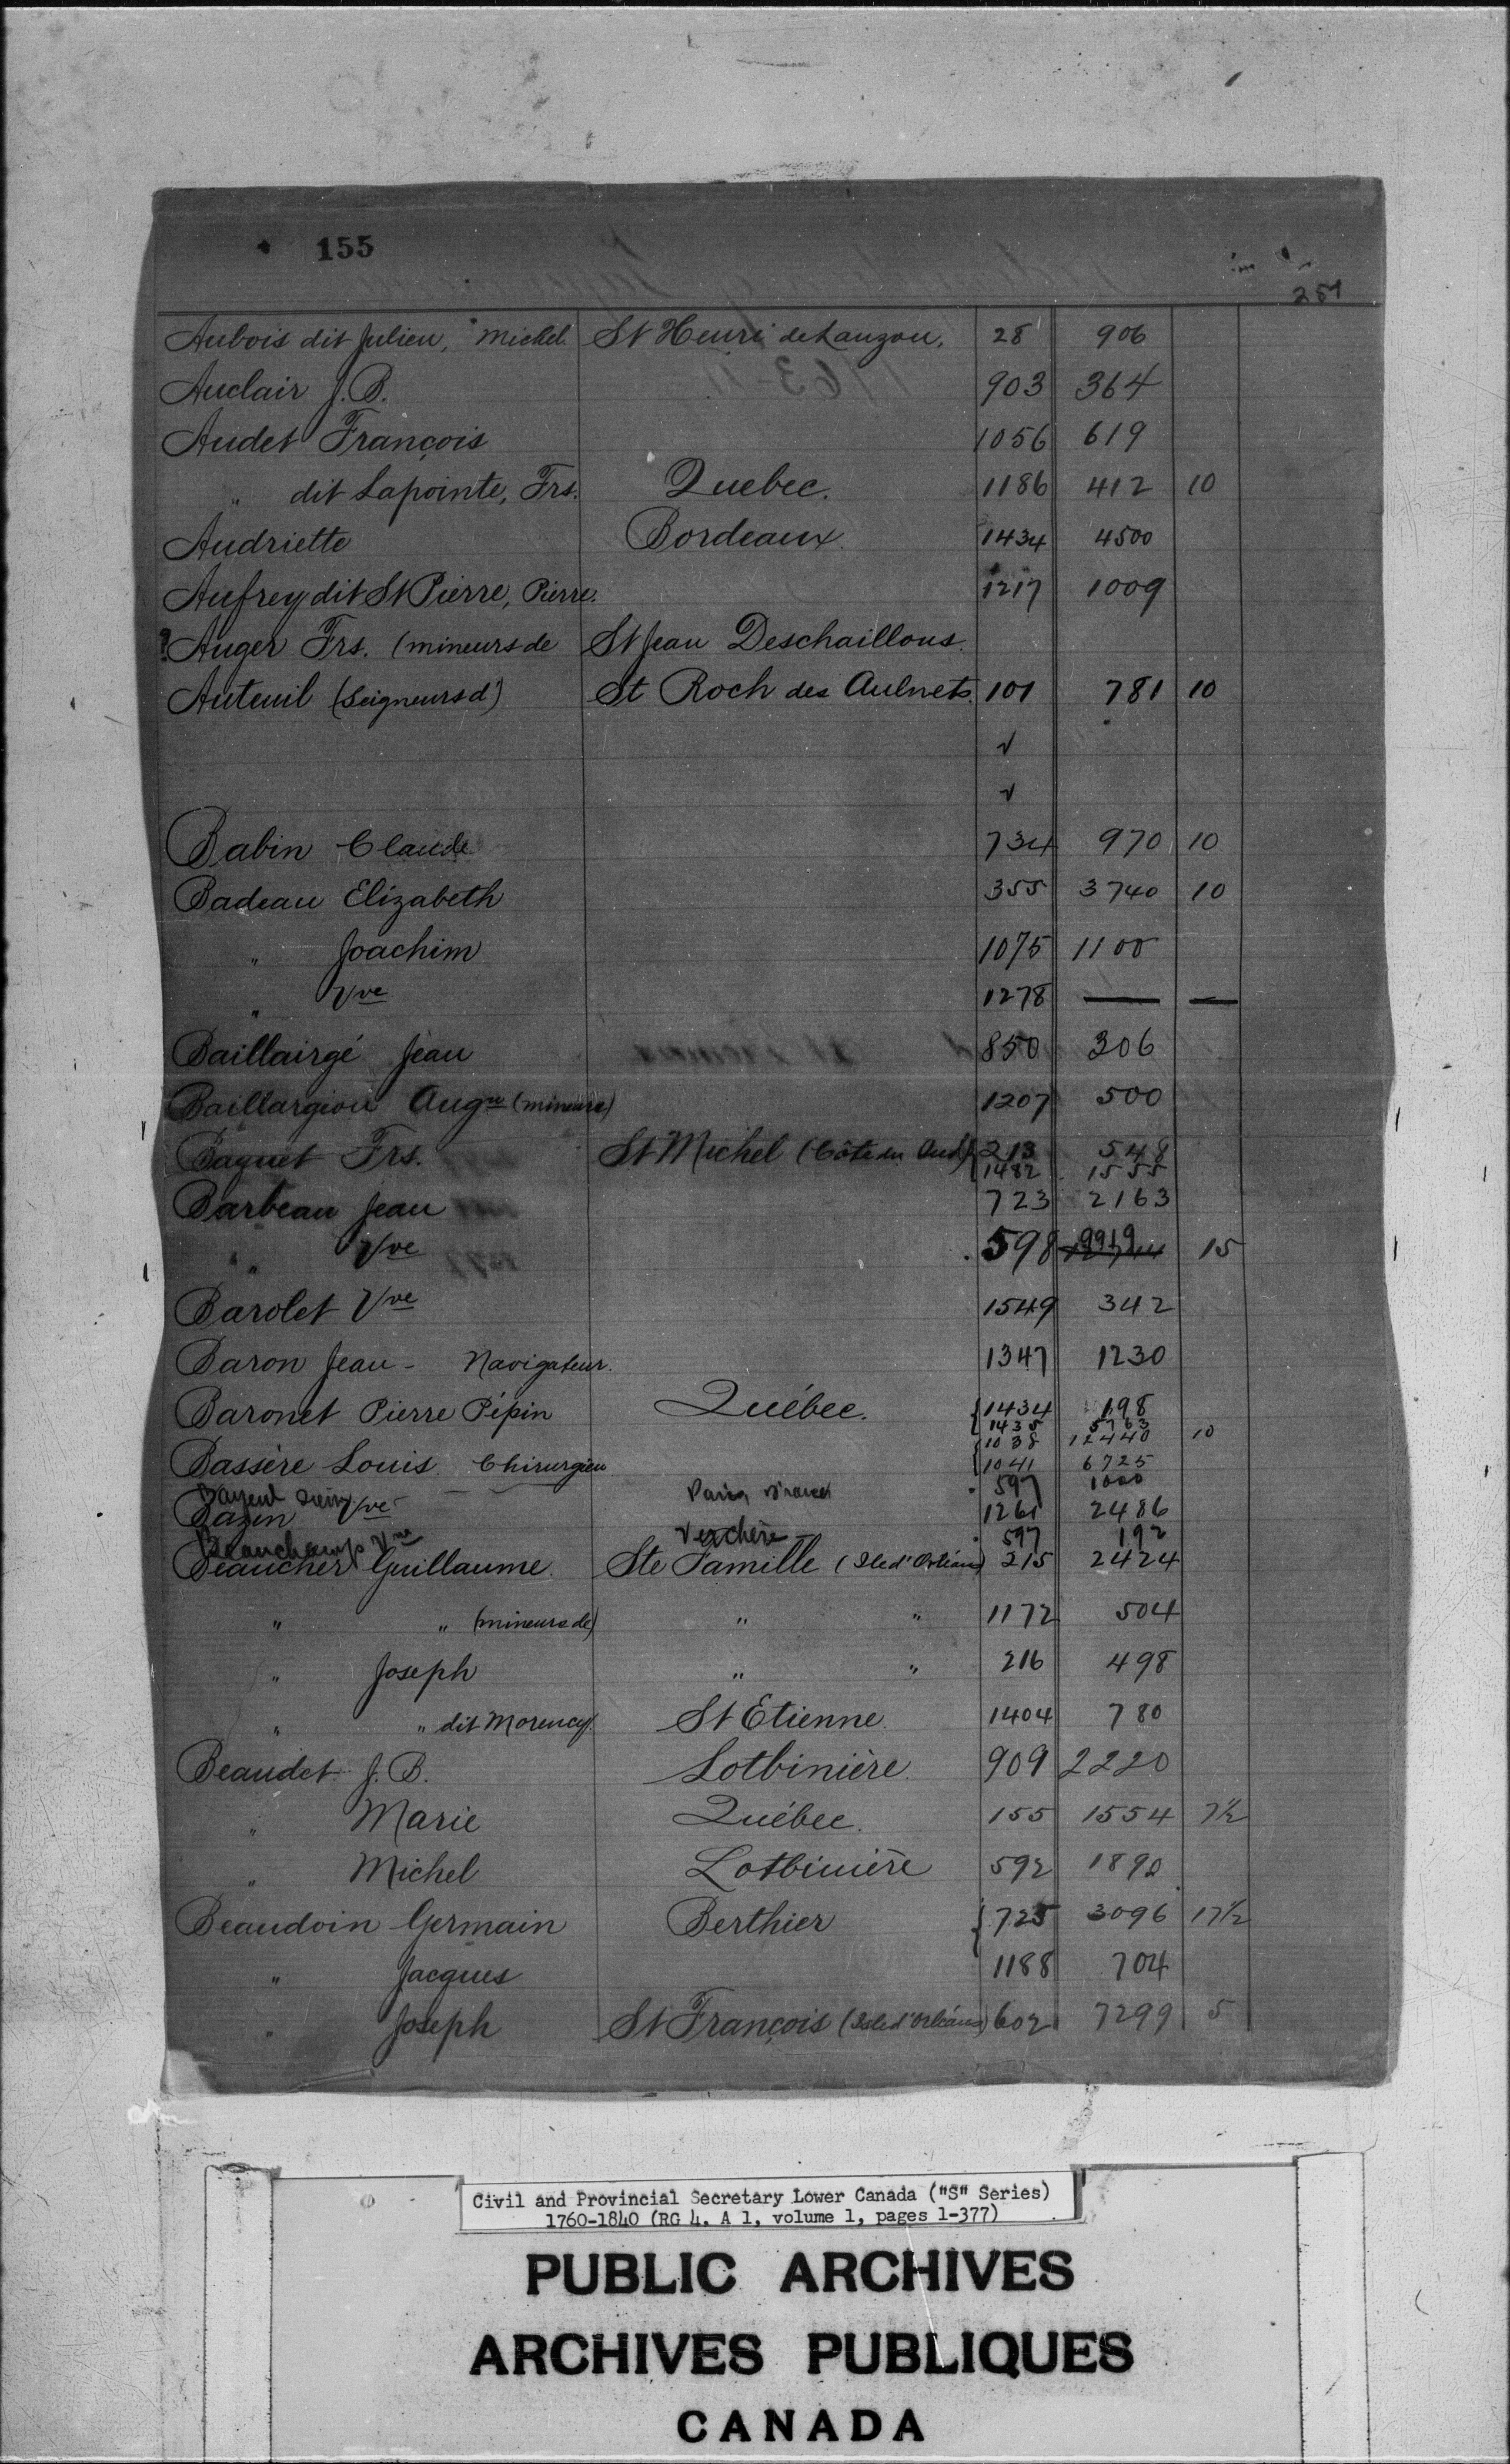 155
251
Aubois dit Julien, Michel. St Henri de Lauzon. 28 906
Auclair J.B. 903 364
Audet François 1056 619
" dit Lapointe, Frs. Quebec. 1186 412 10
Audriette Bordeaux. 1434 4500
Aufrey dit St Pierre, Pierre. 1217 1009
? Auger Frs. (mineurs de St Jean Deschaillons.
Auteuil (Seigneurs d') St Roch des Aulnets. 101 781 10
√
√
Babin Claude 734 970 10
Badeau Elizabeth 355 3740 10
" Joachim 1075 1100
" Vve 1278 — —
Baillairgé Jean 850 306
Baillargion Augn (mineurs) 1207 500
Baquet Frs. St Michel (Côte du Sud) { 213 548
{ 1482 1555
Barbeau Jean 723 2163
" Vve 598 9919 15
Barolet Vve 1549 342
Baron Jean - Navigateur. 1347 1230
Baronet Pierre Pépin Québec. { 1434 198
{ 1435 5763
{ 1038 12440 10
Bassère Louis Chirurgien { 1041 6725
Bayeul Paris France 597 1000
Bazin Vve 1261 2486
Beauchamps Vve Verchère 597 192
Beaucher Guillaume. Ste Famille (Ile d'Orléans) 215 2424
" " (mineurs de) " " 1172 504
" Joseph " " 216 498
" " dit Morency. St Etienne. 1404 780
Beaudet J.B. Lotbinière. 909 2220
" Marie Québec. 155 1554 7½
" Michel Lotbinière 592 1890
Beaudoin Germain Berthier { 725 3096 17½
" Jacques 1188 704
" Joseph St François (Isle d'Orléans) 602 7299 5
Civil and Provincial Secretary Lower Canada ("S" Series)
1760-1840 (RG 4, A 1, volume 1, pages 1-377)
PUBLIC ARCHIVES
ARCHIVES PUBLIQUES
CANADA